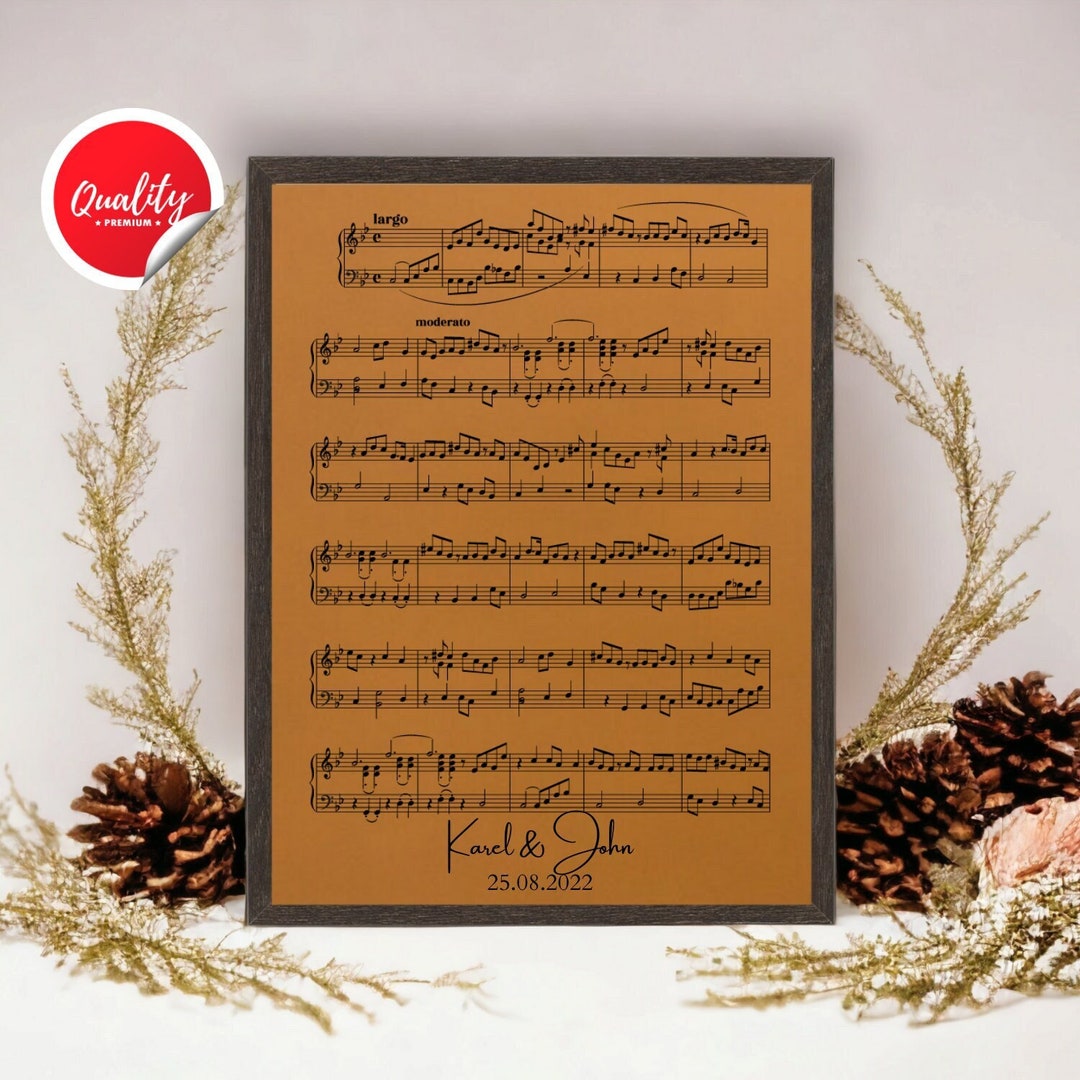 Quality
★ PREMIUM ★
largo
moderato
Karel & John
25.08.2022